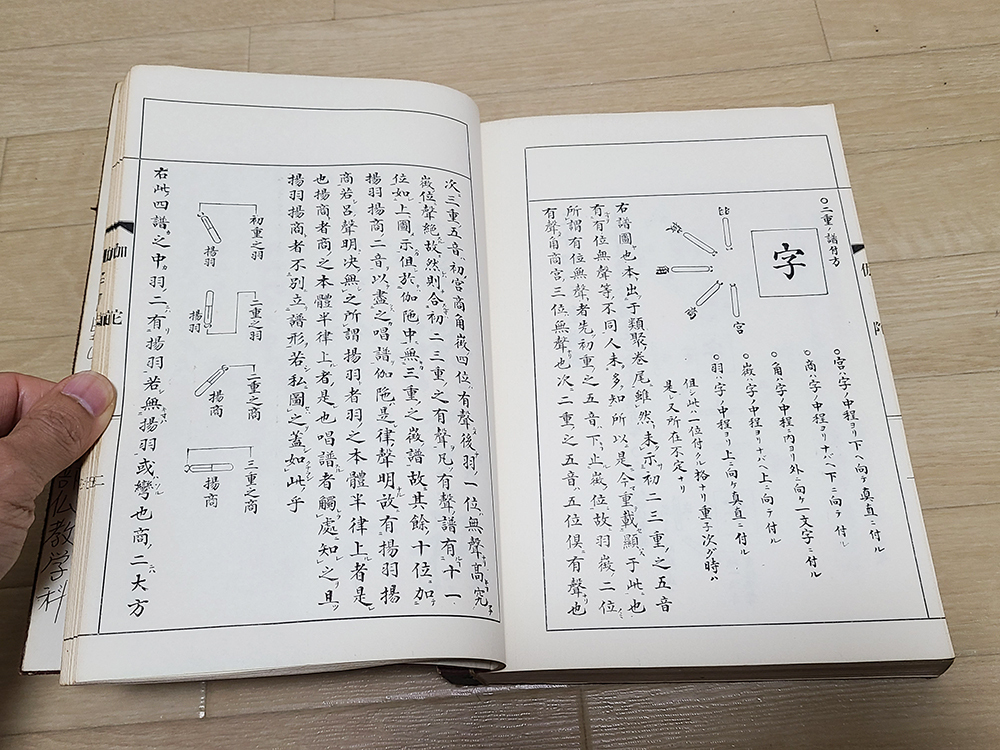 ○二重ノ譜付方
字
宮
商
角
徵
羽
○宮ハ字ノ中程ヨリ下ヘ向テ真直ニ付ル
○商ハ字ノ中程ヨリナハヘ下ニ向テ付ル
○角ハ字ノ中程内ヨリ外ニ向ケ一文字ニ付ル
○徵ハ字ノ中程ヨリナハヘ上ニ向テ付ル
○羽ハ字ノ中程ヨリ上ニ向ケ真直ニ付ル
但シ此ハ一位付クル格ナリ重子次グ時ハ
是ノ又所在不定ナリ
右譜圖也本出于類聚卷尾雖然未示初二三重之五音
有有位無聲等不同人未多知所以是今重載顯于此也
所謂有位無聲者先初重之五音下止徵位故羽徵二位
有聲角商宮三位無聲也次二重之五音五位俱有聲也
次三重五音初宮商角徵四位有聲後羽一位無聲高究
徵位聲絕故然則合初二三重之有聲凡有聲譜有十一
位如上圖示俱於伽陀中無三重之徵譜故其餘十位加
揚羽揚商二音以盡之唱譜伽陀是律聲明故有揚羽揚
商若呂聲明决無之所謂揚羽者羽之本體半律上者是
也揚商者商之本體半律上者是也唱譜者觸處知之且
揚羽揚商者不別立譜形若私圖之蓋如此乎
初重之羽
揚羽
二重之羽
揚羽
二重之商
揚商
三重之商
揚商
右此四譜之中羽二有揚羽若無揚羽或彎也商二大方
伽陀
仏教学科